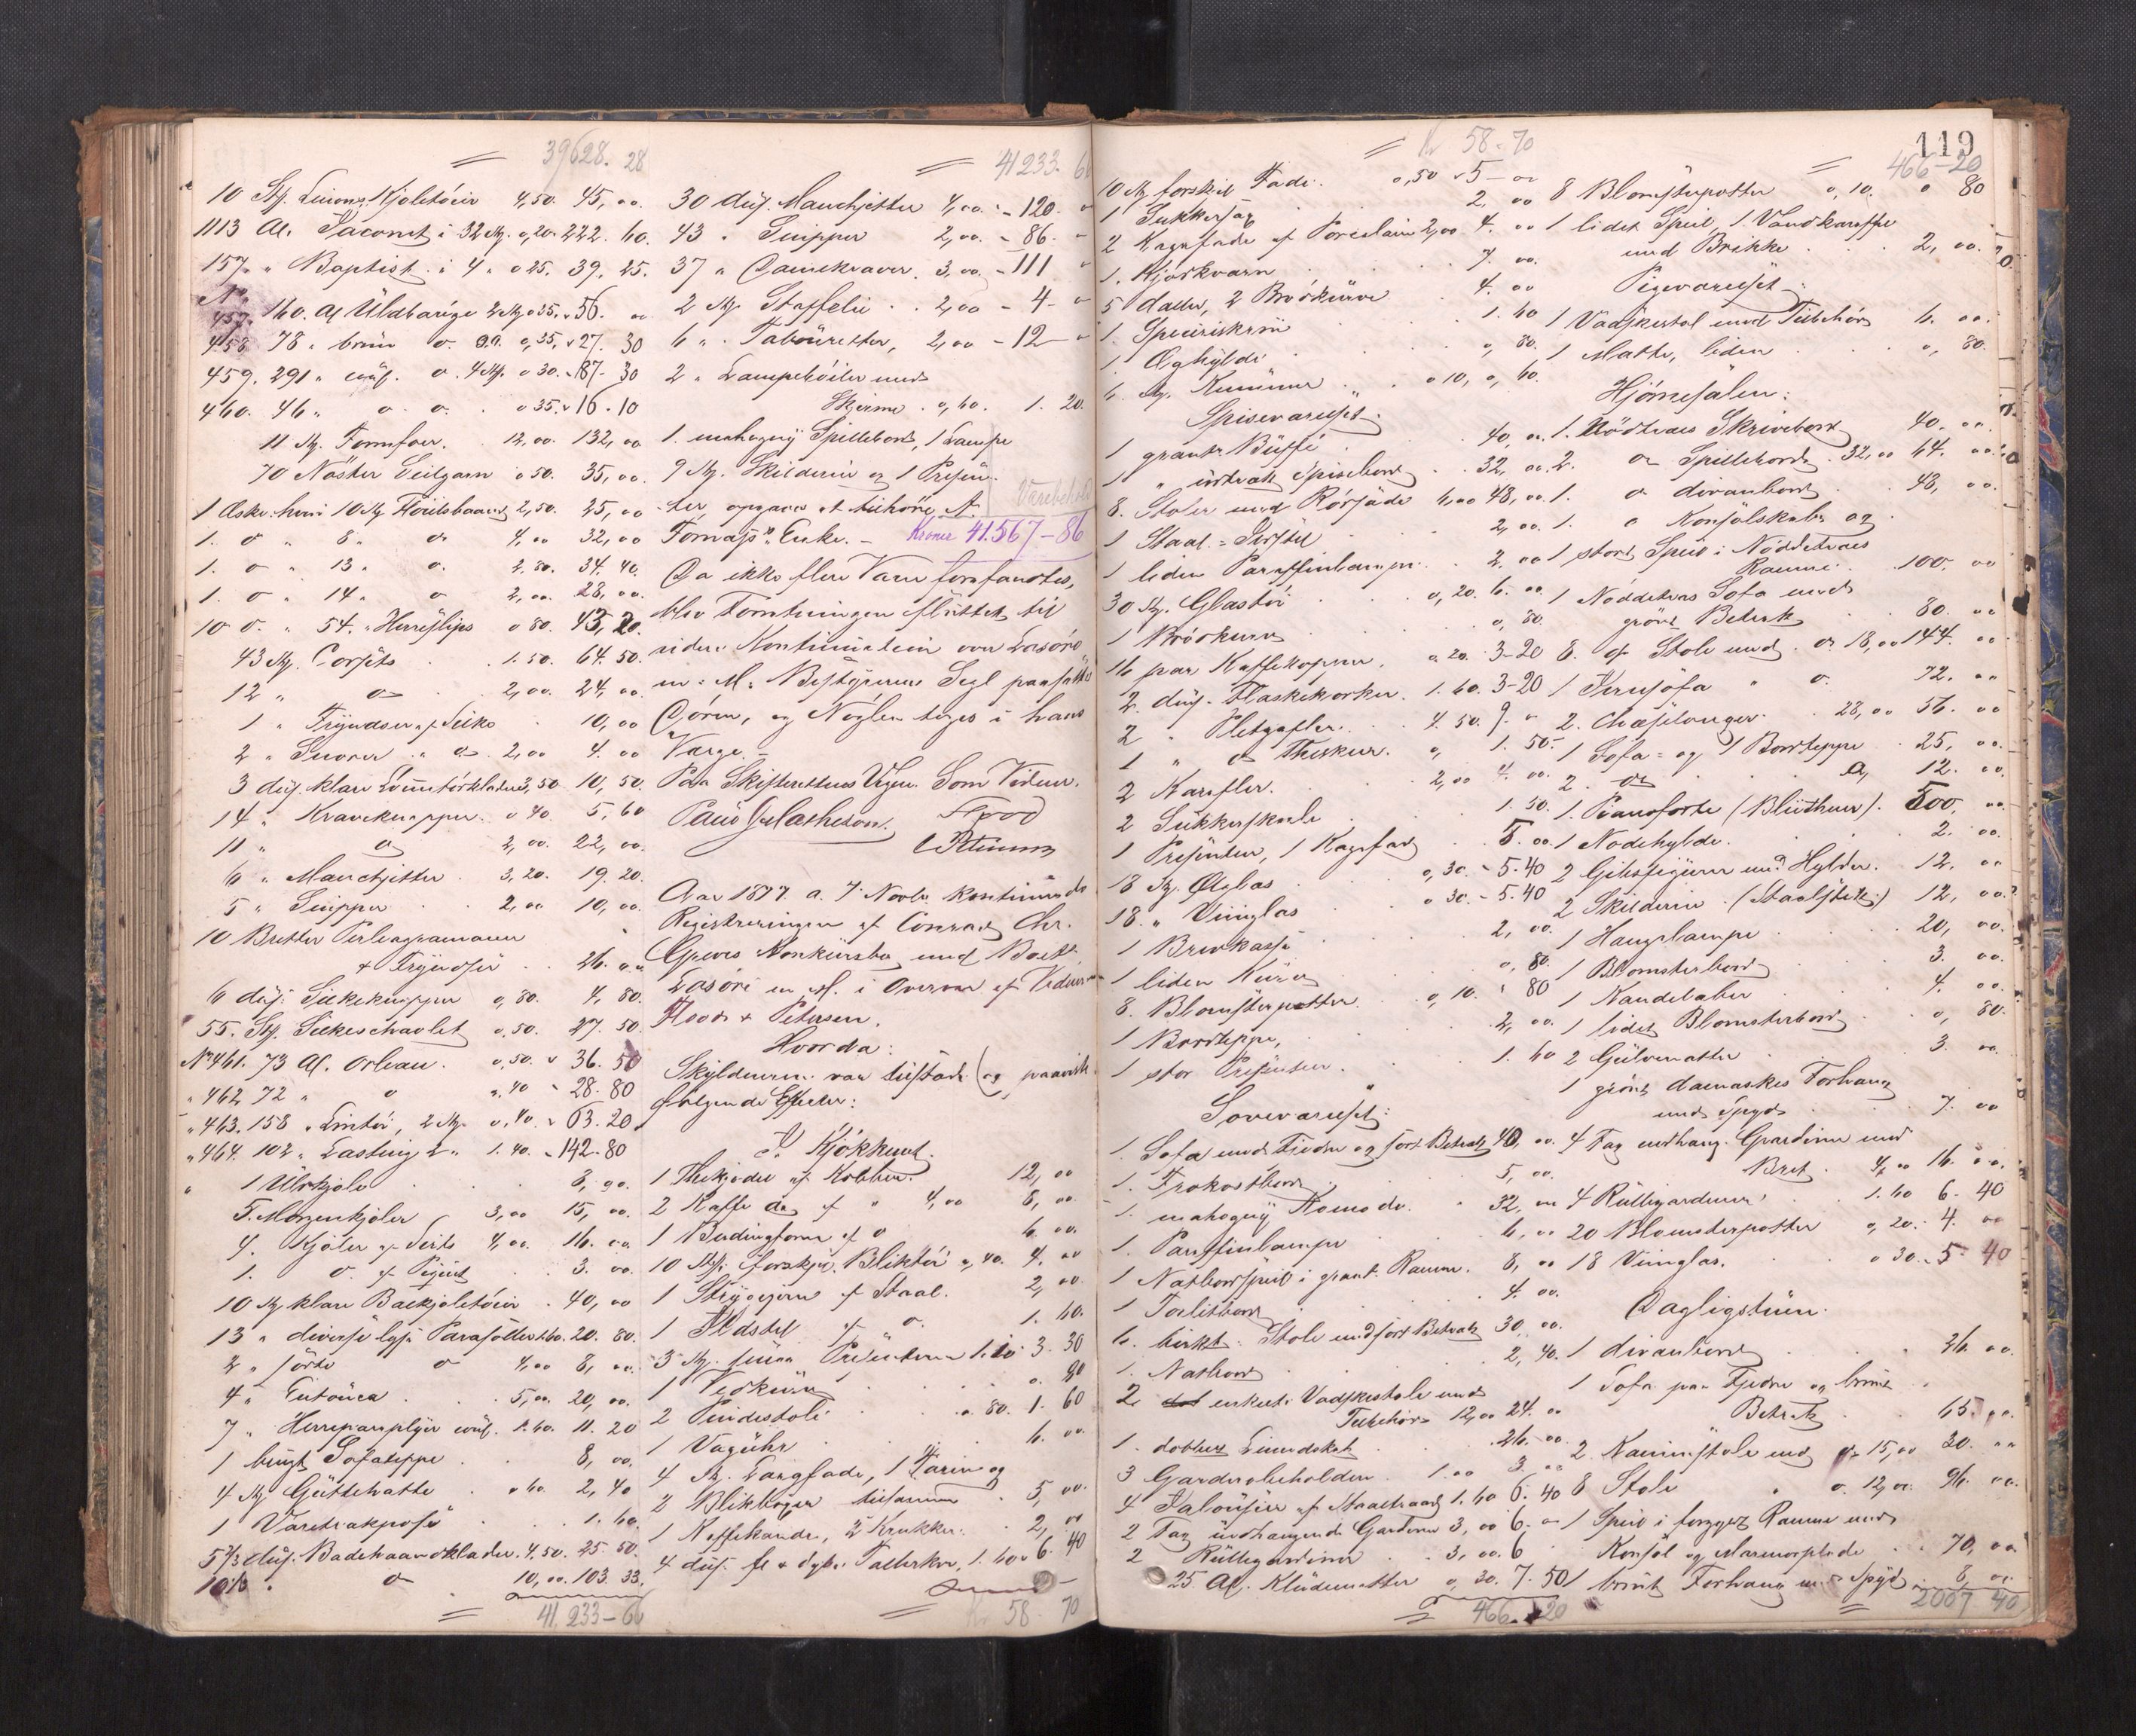 39628. 28
10 Stk. Kjoletøier 4,50. 45,00.
1113 Al. Jaconet i 32 Stk. 0,20. 222. 60.
157 " Baptist i 4 " 0 25. 39. 25.
No 457. 160. Al Uldbarège 2 Stk 0 35. " 56. 00
458 78 " brun do. do. 0,35. " 27. 30
459. 291 " couf. do. 4 Stk. 0 30. " 87. 30
460. 46 " do do. 0 35. " 16. 10
11 Stk. 12,00. 132,00
70 Nøster Seilgarn 0 50. 35,00.
1 Æske hvori 10 Stk Fløielsbaand 2,50. 25,00
1. do " 8 " do 4,00 32,00
1. do " 13 " do. 2.80. 34. 40.
1. do " 14 " do 2,00. 28,00.
10 do. " 54. " Herreslips 0 80. 43,20.
43 Stk. Corsets 1. 50. 64. 50.
12 " do 2,00. 24,00.
1 " Fryndser af Silke 10,00
2 " Snorer " do 2,00 4. 00
3 dus. klare Lommetørklæder 3,50 10,50.
14 " Kraveknapper 0 40. 5,60
11 " do 2,00. 22,00.
6 " Manchetter 3,20. 19. 20.
5 " Snipper 2,00 10,00.
10 Bretter
+ Fryndser 26. 00
6 dus. Silkeknapper 0,80. 4,80.
55. Stk. Silkeschavlet 0,50. 27. 50.
No 461. 73 Al. Orlean. 0,50. " 36. 50
" 462. 72 " do 0,40 " 28. 80
" 463. 158 " Lintøi, 2 Stk. 0,40. " 63. 20
" 464. 102 " Lasting 2 " 1. 40. " 142. 80
" 1 Ulvkjole 8,00.
5. Morgenkjoler 3,00 15,00.
4. Kjoler af 4,00. 16. 00.
1. do. af 3. 00.
10 Stk klare Balkjoletøier 40,00
13 " diverse lyse Parasoller 1.60. 20. 80.
2 " sorte do 4,00 8,00.
4 " Entouca 5,00. 20,00.
7 " Herreparaplyer couf. 1.60. 11. 20
1 brugt Sofateppe 8,00.
4 Stk Guttehatte 0 60. 2,40
1 1. 60.
5 2/3 dus. Badehaandklæder 4,50. 25. 50.
10 1/3 " do 10,00. 103. 33.
41,233-66
41233. 66
30 dus. Manchetter 4,00. " 120. "
43 " Snipper 2,00. " 86. "
37 " Damekraver 3,00. " 111 "
2 Stk. Staffelie 2,00 - 4- "
6 " Tabouretter, 2,00 - 12- "
2 " Lampehøiler med
Skjerme 0,60. 1. 20.
1. mahogny Spillebord, 1 Lampe
9 Stk. Skilderier og 1 Presen-
ter, opgaves at tilhøre A.
Enke. - Kroner 41.567-86
Da ikke flere Varer forefandtes,
blev Forretningen sluttet til
videre Kontinuation over Løsøre
m. M. Bestyrerens Segl paasattes
Døren, og Nøglen toges i hans
Værge. -
Paa Skifterettens Vegne. Som Vidner.
Paul J. Matheson. Flood
Aar 1877 a. 7 Novbr. kontinuerede
Registreringen af Conrad Chr.
Greves Konkursbo med Boets
Løsøre m. M. i Overvær af Vidnerne
Flood & Petersen.
Hvorda:
Skyldneren var tilstede (og paaviste
følgende Effecter:
I Kjøkkenet.
1 Thekjedel af Kobber. 12,00
2 Kaffe do af " 4,00 8,00.
1 Budingform af do 6. 00.
10 Stk. forskjel. Bliktøi 0,40. 4. 00
1 Strygejern af Staal. 2,00.
1 Ildstel af do. 1. 60.
3 Stk. smaa Presenterer 1.10 3. 30
1 Vedkurv 0. 90
2 Pindestole 0. 80. 1. 60
1 Væguhr 6. 00.
4 Stk. Langfade, 1 Tarin og
2 Blikbøger tilsammen 5,00.
1 Kaffekande, 2 Krukker 2,00
4 dus. fl. & dybe Tallerkner, 1. 60 " 6. 40
Kr 58. 70
Kr 58-70
10 Stk forskjel Fade. 0,50 " 5- 00
1 Sukkersag 2,00
2 Kagefade af Porcelain 2,00 4. 00
1. Kjødkværn 7. 00.
5 Daller, 2 Brødkurve 4. 00
1. Speceriskrin 1. 60
1 Æghylde 0,80.
6. Stk. Krummer 0 10, 0,60.
Spiseværelset.
1 granke Buffé 40,00.
1 " udtræk Spisebord 32,00.
8. Stole med Rørsæde 6,00 48,00.
1 Staal= 2,00.
1 liden Paraffinlampe 2. 00
30 Stk. Glastøi 0,20. 6. 00.
1 Brødkurv 0,80.
16 par Kaffekopper. 0. 20. 3-20
2. dus. Flaskekorker 1. 60. 3-20
2 " Pletgafler 4. 50. 9. "
1 " do Theskeer. 0, 1. 50.
2 Karafler. 2,00 4. 00.
2 Sukkerskaale 1. 50.
1 Presenter, 1 Kagefad 5. 00.
18 Stk. Ølglas 0,30. - 5. 40
18. " Viinglas 0 30. - 5. 40
1 Brevkasse 2,00.
1 liden Kurv 0,80.
8. Blomsterpotter 0,10. " 80
1 Bordteppe, 2,00.
1 stor Presenter. 1. 60
Soveværelset:
1. Sofa med Fjedre og sort Betræk 40,00.
1. Frokostbord 5,00.
1. mahogny Komode. 32,00
1. Paraffinlampe 6,00
1 Natbordspeil i grant. Ramme. 8,00
1 Toiletbord 4. 00.
6. birkt. Stole med sort Betræk 30,00.
1. Natbord 2,40.
2 enkelte Vadskestole med
Tilbehør 12,00 24. 00
1. dobbelt Linnedskab 26. 00
3 Garderobeholdere 1. 00 3. 00
4 Jalousier af Staaltraad 1. 60 6. 40
2 Fag uudhangende Gardiner 3,00 6. 00
2 Rullegardiner 3,00. 6
25 Al. Kludematter 0,30. 7. 50
466. 20
119
466-20
8 Blomsterpotter 0,10. 0 80
1 lidet Speil, 1 Vandkaraffel
med Brikke 2,00.
Pigeværelset
1 Vadskestol med Tilbehør 6. 00.
1 Matte, liden 0,80.
Hjørnesalen:
1. Nødtræes Skrivebord 40. 00.
2. do Spilleborde 32,00 64. 00
1. do divanbord 48,00.
1. do Konsolskab og
1 stort Speil i Nøddetræes
Ramme. 100. 00
1 Nøddetræs Sofa med
grønt Betræk 80. 00
8. do Stole med do 18,00 144. 00
1 " do. 72. 00
2. Chaiselonger 28,00 56. 00
1 Sofa= og 1 Bordteppe 25,00.
2 do do, 12. 00.
1. Pianoforte (Blüthner). 500,00.
1 Nodehylde. 2. 00.
2 Gibsfigurer med Hylder. 12,00
2 Skilderier (Staalstik:) 12,00.
1 Hængelampe 20,00.
1 Blomsterbord 3. 00.
1 Kandelaber 4. 00.
1 lidet Blomsterbord 0,80.
2 Gulvmatter 3. 00.
1 grønt damaskes Forhæng
med Spyd 7. 00
4 Fag nedhæng. Gardiner med
Bret. 4,00 16. 00.
4 Rullegardiner 1. 60 6. 40
20 Blomsterpotter 0,20. 4. 00
18 Viinglas. 0 30. 5. 40
Dagligstuen.
1 divanbord 26. 00.
1 Sofa paa Fjedre og brunt
Betræk 65. 00.
2 Kaminstole med do 15,00 30. 00
8 Stole " do. 12,00. 96. 00.
1 Speil i forgyldt Ramme med
Konsol og Marmorplade 70,00
1 brunt Forhæng med Spyd 6,00.
2007 40